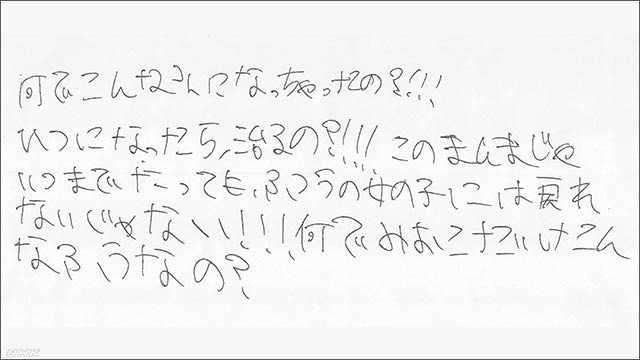 何でこんなふうになっちゃったの?!!!
いつになったら、治るの?!!! このまんまじゃ
いつまでたっても、ふつうの女の子には戻れ
ないじゃない!!! 何でみおこだけこん
なふうなの?
NHK